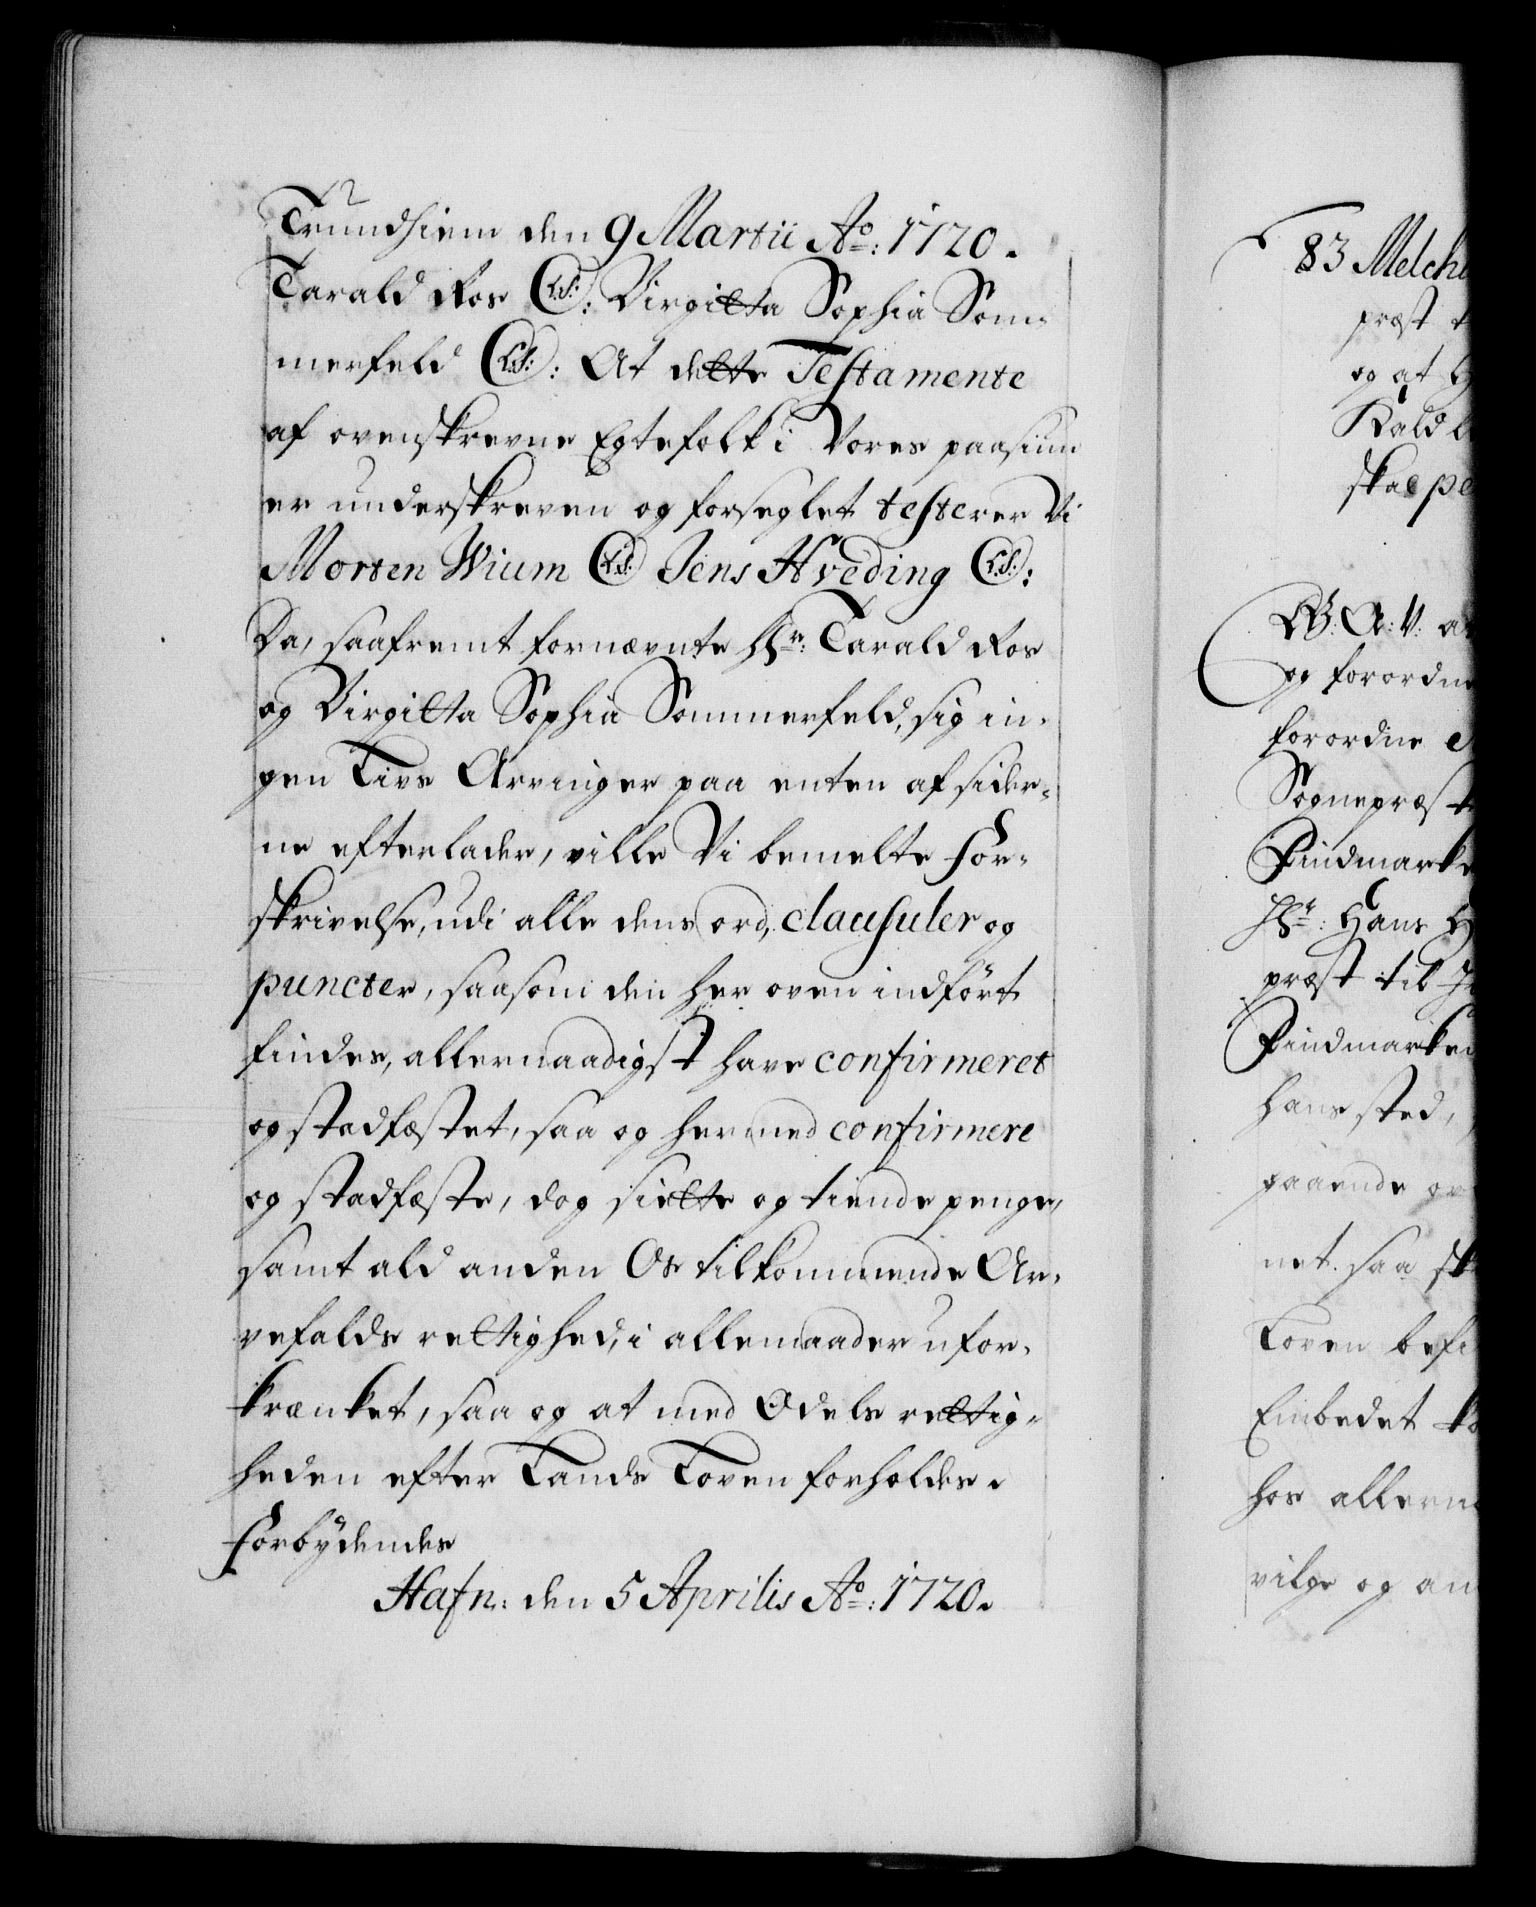 Trundhiem den 9 Martii Ao: 1720.
Tarald Ros (L.S.): Virgitta Sophia Som-
merfeld (L.S.): At dette Testamente
af ovenskrevne Egtefolk i Vores paasiun
er underskreven og forseglet testerer Vi
Morten Wium (L.S.) Jens Hveding (L.S.):
Da, saafremt fornævnte Hr: Tarald Ros
og Virgitta Sophia Sommerfeld, sig in-
gen Livs Arvinger paa enten af sider-
ne efterlader, ville Vi bemelte For-
skrivelse, udi alle dens ord, clausuler og
puncter, saasom den her oven indført
findes, allernaadigst have confirmeret
og stadfæstet, saa og hermed confirmere
og stadfæste, dog siette og tiende penge,
samt ald anden Os tilkommende Ar-
vefalds rettighed, i allemaader ufor-
krænket, saa og at med Odels rettig-
heden efter Lands Loven forholdes.
Forbydendes
Hafn: den 5 Aprilis Ao: 1720.
83 Melch
præst t
og at H
Kald b
skal pe
C V. G: A: V: at
og forordne
forordne
Sognepræst
Findmarke
Hr: Hans H
præst til
Findmarken
hans sted,
gaaende or
net. saa sk
Loven befi
Embedet
hos allern
vilge og an